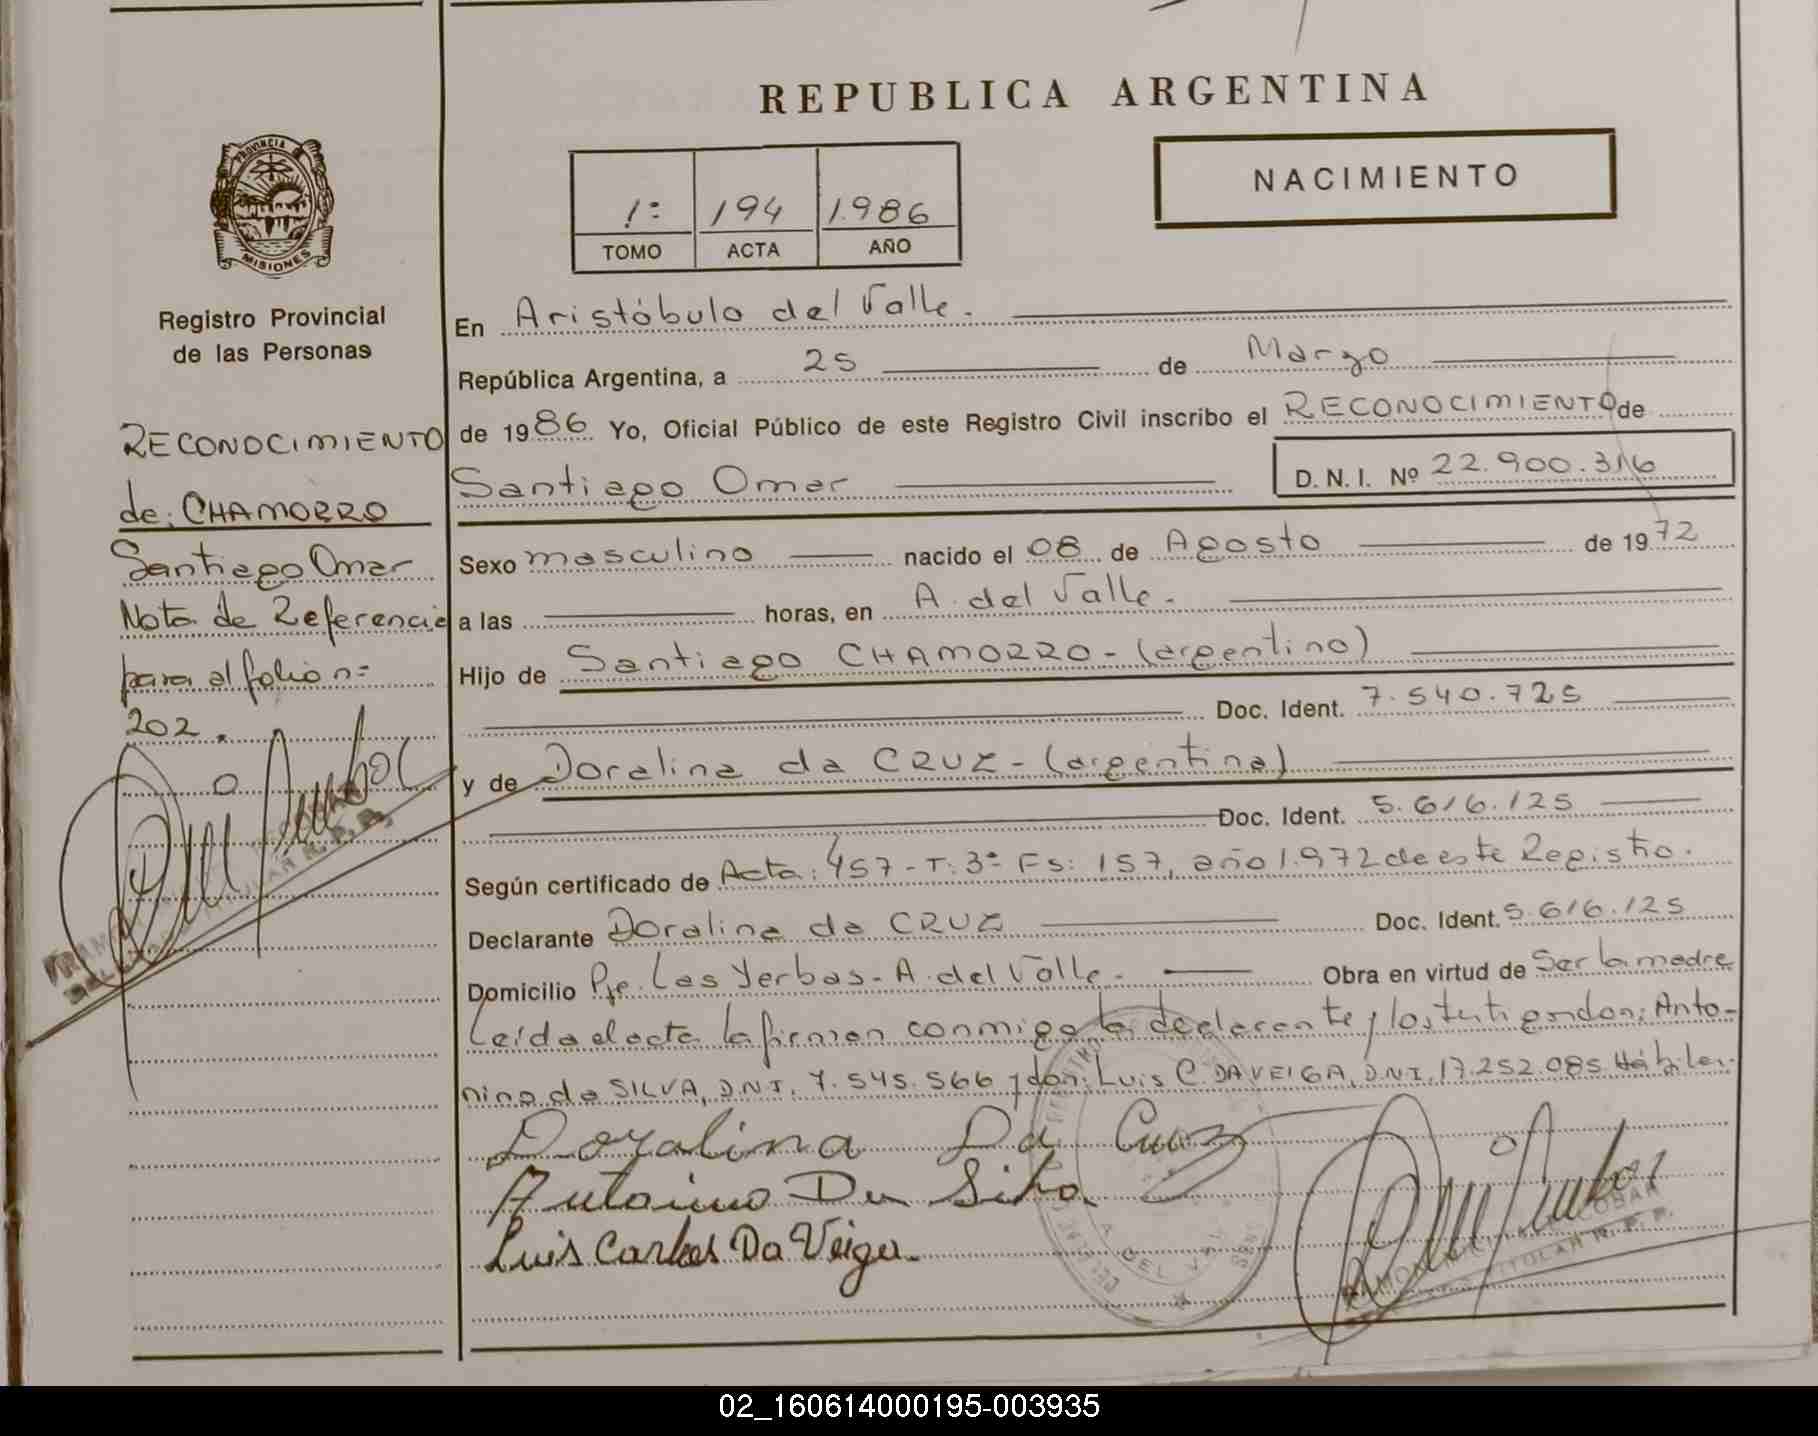 REPUBLICA ARGENTINA
NACIMIENTO
1º 194 1.986
TOMO ACTA AÑO
PROVINCIA
MISIONES
Registro Provincial
de las Personas
RECONOCIMIENTO
de: CHAMORRO
Santiago Omar
Nota de Referencia
para al folio nº
202.
En Aristóbulo del Valle.
República Argentina, a 25 de Marzo
de 1986 Yo, Oficial Público de este Registro Civil inscribo el RECONOCIMIENTO de
Santiago Omar D. N. I. Nº 22.900.316
Sexo masculino nacido el 08 de Agosto de 1972
a las horas, en A. del Valle.
Hijo de Santiago CHAMORRO - (argentino)
Doc. Ident. 7.540.725
y de Doralina da CRUZ - (argentina)
Doc. Ident. 5.616.125
Según certificado de Acta: 457 - T: 3º Fs: 157, año 1.972 de este Registro.
Declarante Doralina da CRUZ Doc. Ident. 5.616.125
Domicilio Pje. Las Yerbas - A. del Valle. Obra en virtud de Ser la madre
Leída el acta la firman conmigo la declarante y los testigos don: Anto-
nino da SILVA, D.N.I. 7.545.566 y don: Luis C. DA VEIGA, D.N.I. 17.252.085 Hábiles.
Doralina Da Cruz
Antonino Da Silva
Luis Carlos Da Veiga
A. DEL VALLE
02_160614000195-003935